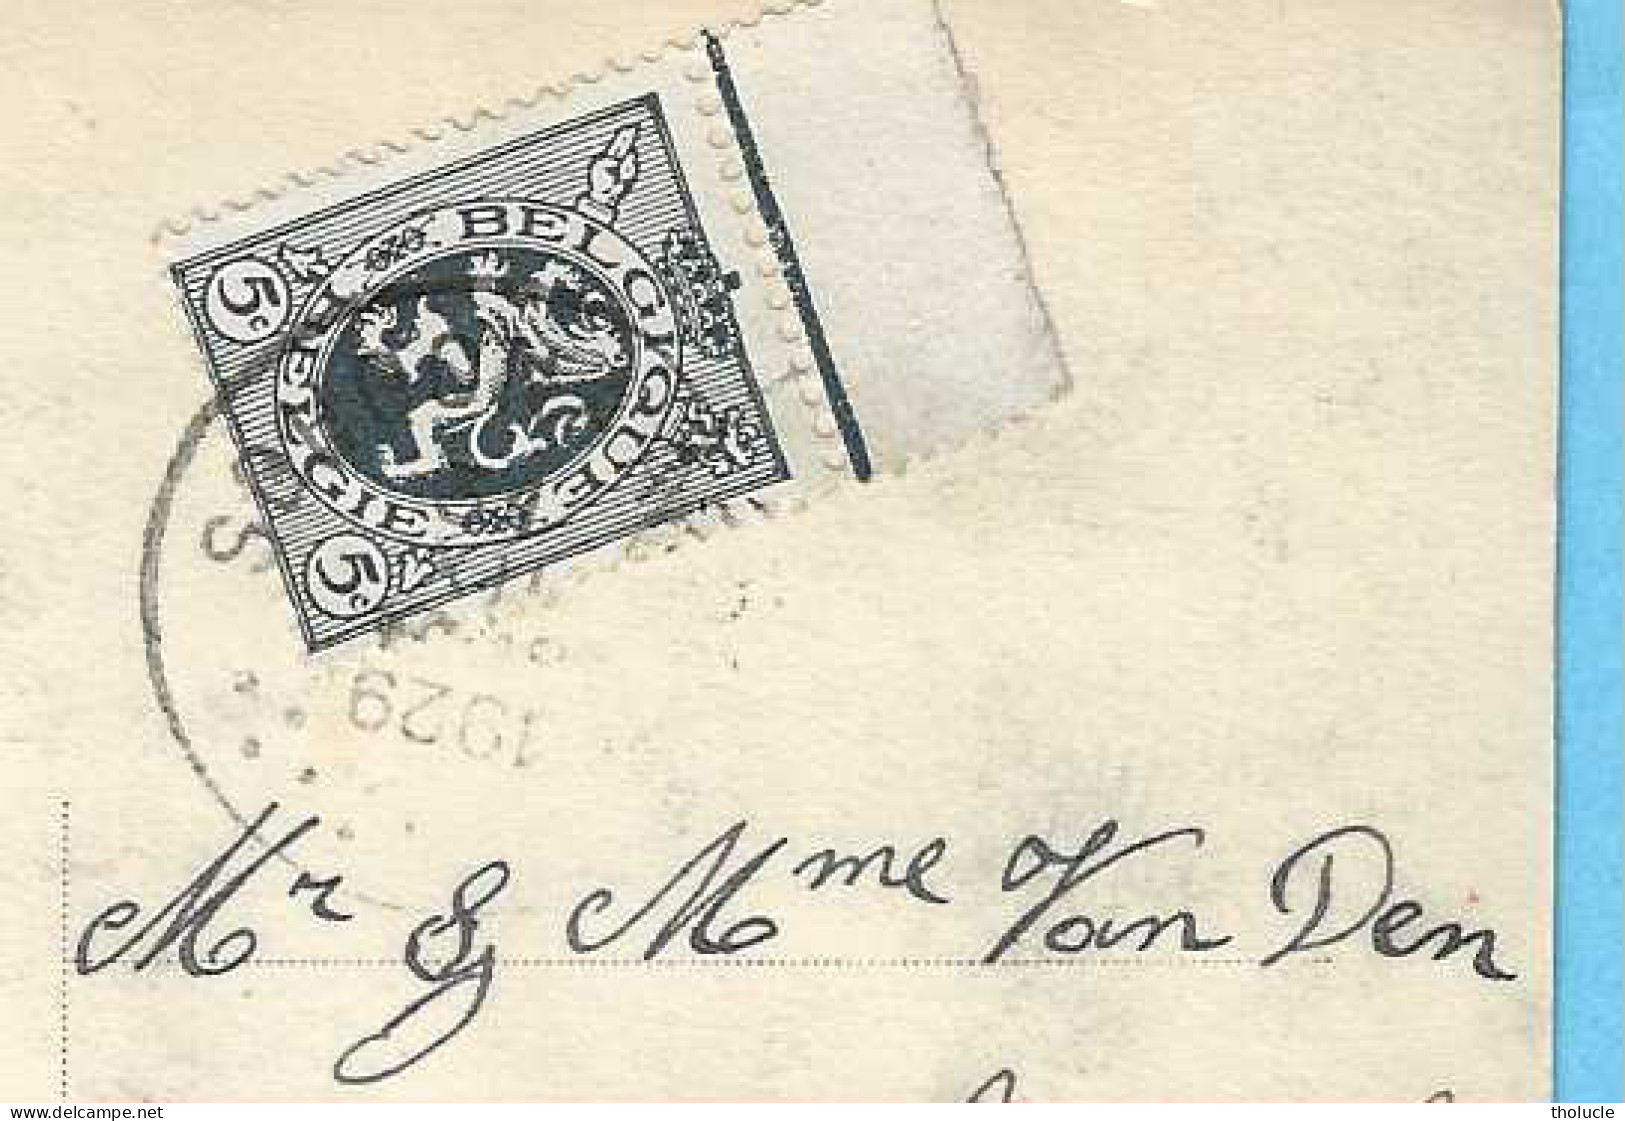 5c
BELGIQUE
BELGIE
5c
1929
Mr & Mme Van Den
www.delcampe.net
tholucle